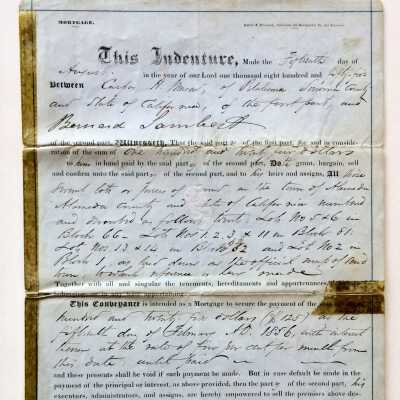 MORTGAGE.
This Indenture, Made the Fifteenth day of
August in the year of our Lord one thousand eight hundred and fifty five
Between of Petaluma Sonoma County
and State of California, of the first part, and
Bernard Lambert
of the second part, Witnesseth, That the said part of the first part, for and in consideration
of the sum of One hundred and dollars
to in hand paid by the said part of the second part, Do grant, bargain, sell
and confirm unto the said part of the second part, and to his heirs and assigns, All those
several lots or pieces of land in the town of Alameda
Alameda County and State of California numbered
and described as follows to wit: Lots Nos 5 & 6 in
Block 66 Lots Nos 1, 2, 3 & 11 in Block 81
Lots Nos. 13 & 14 in Block and Lot No 2 in
Block 1, as laid down on the official map of said
town to which reference is here made
Together with all and singular the tenements, hereditaments and appurtenances
This Conveyance is intended as a Mortgage to secure the payment of the
hundred and twenty five dollars ($125) on the
fifteenth day of February A.D. 1856, with interest
thereon at the rate of per cent per month from
this date until paid
and these presents shall be void if such payment be made. But in case default be made in the
payment of the principal or interest, as above provided, then the part of the second part, his
executors, administrators, and assigns, are hereby empowered to sell the premises above des-